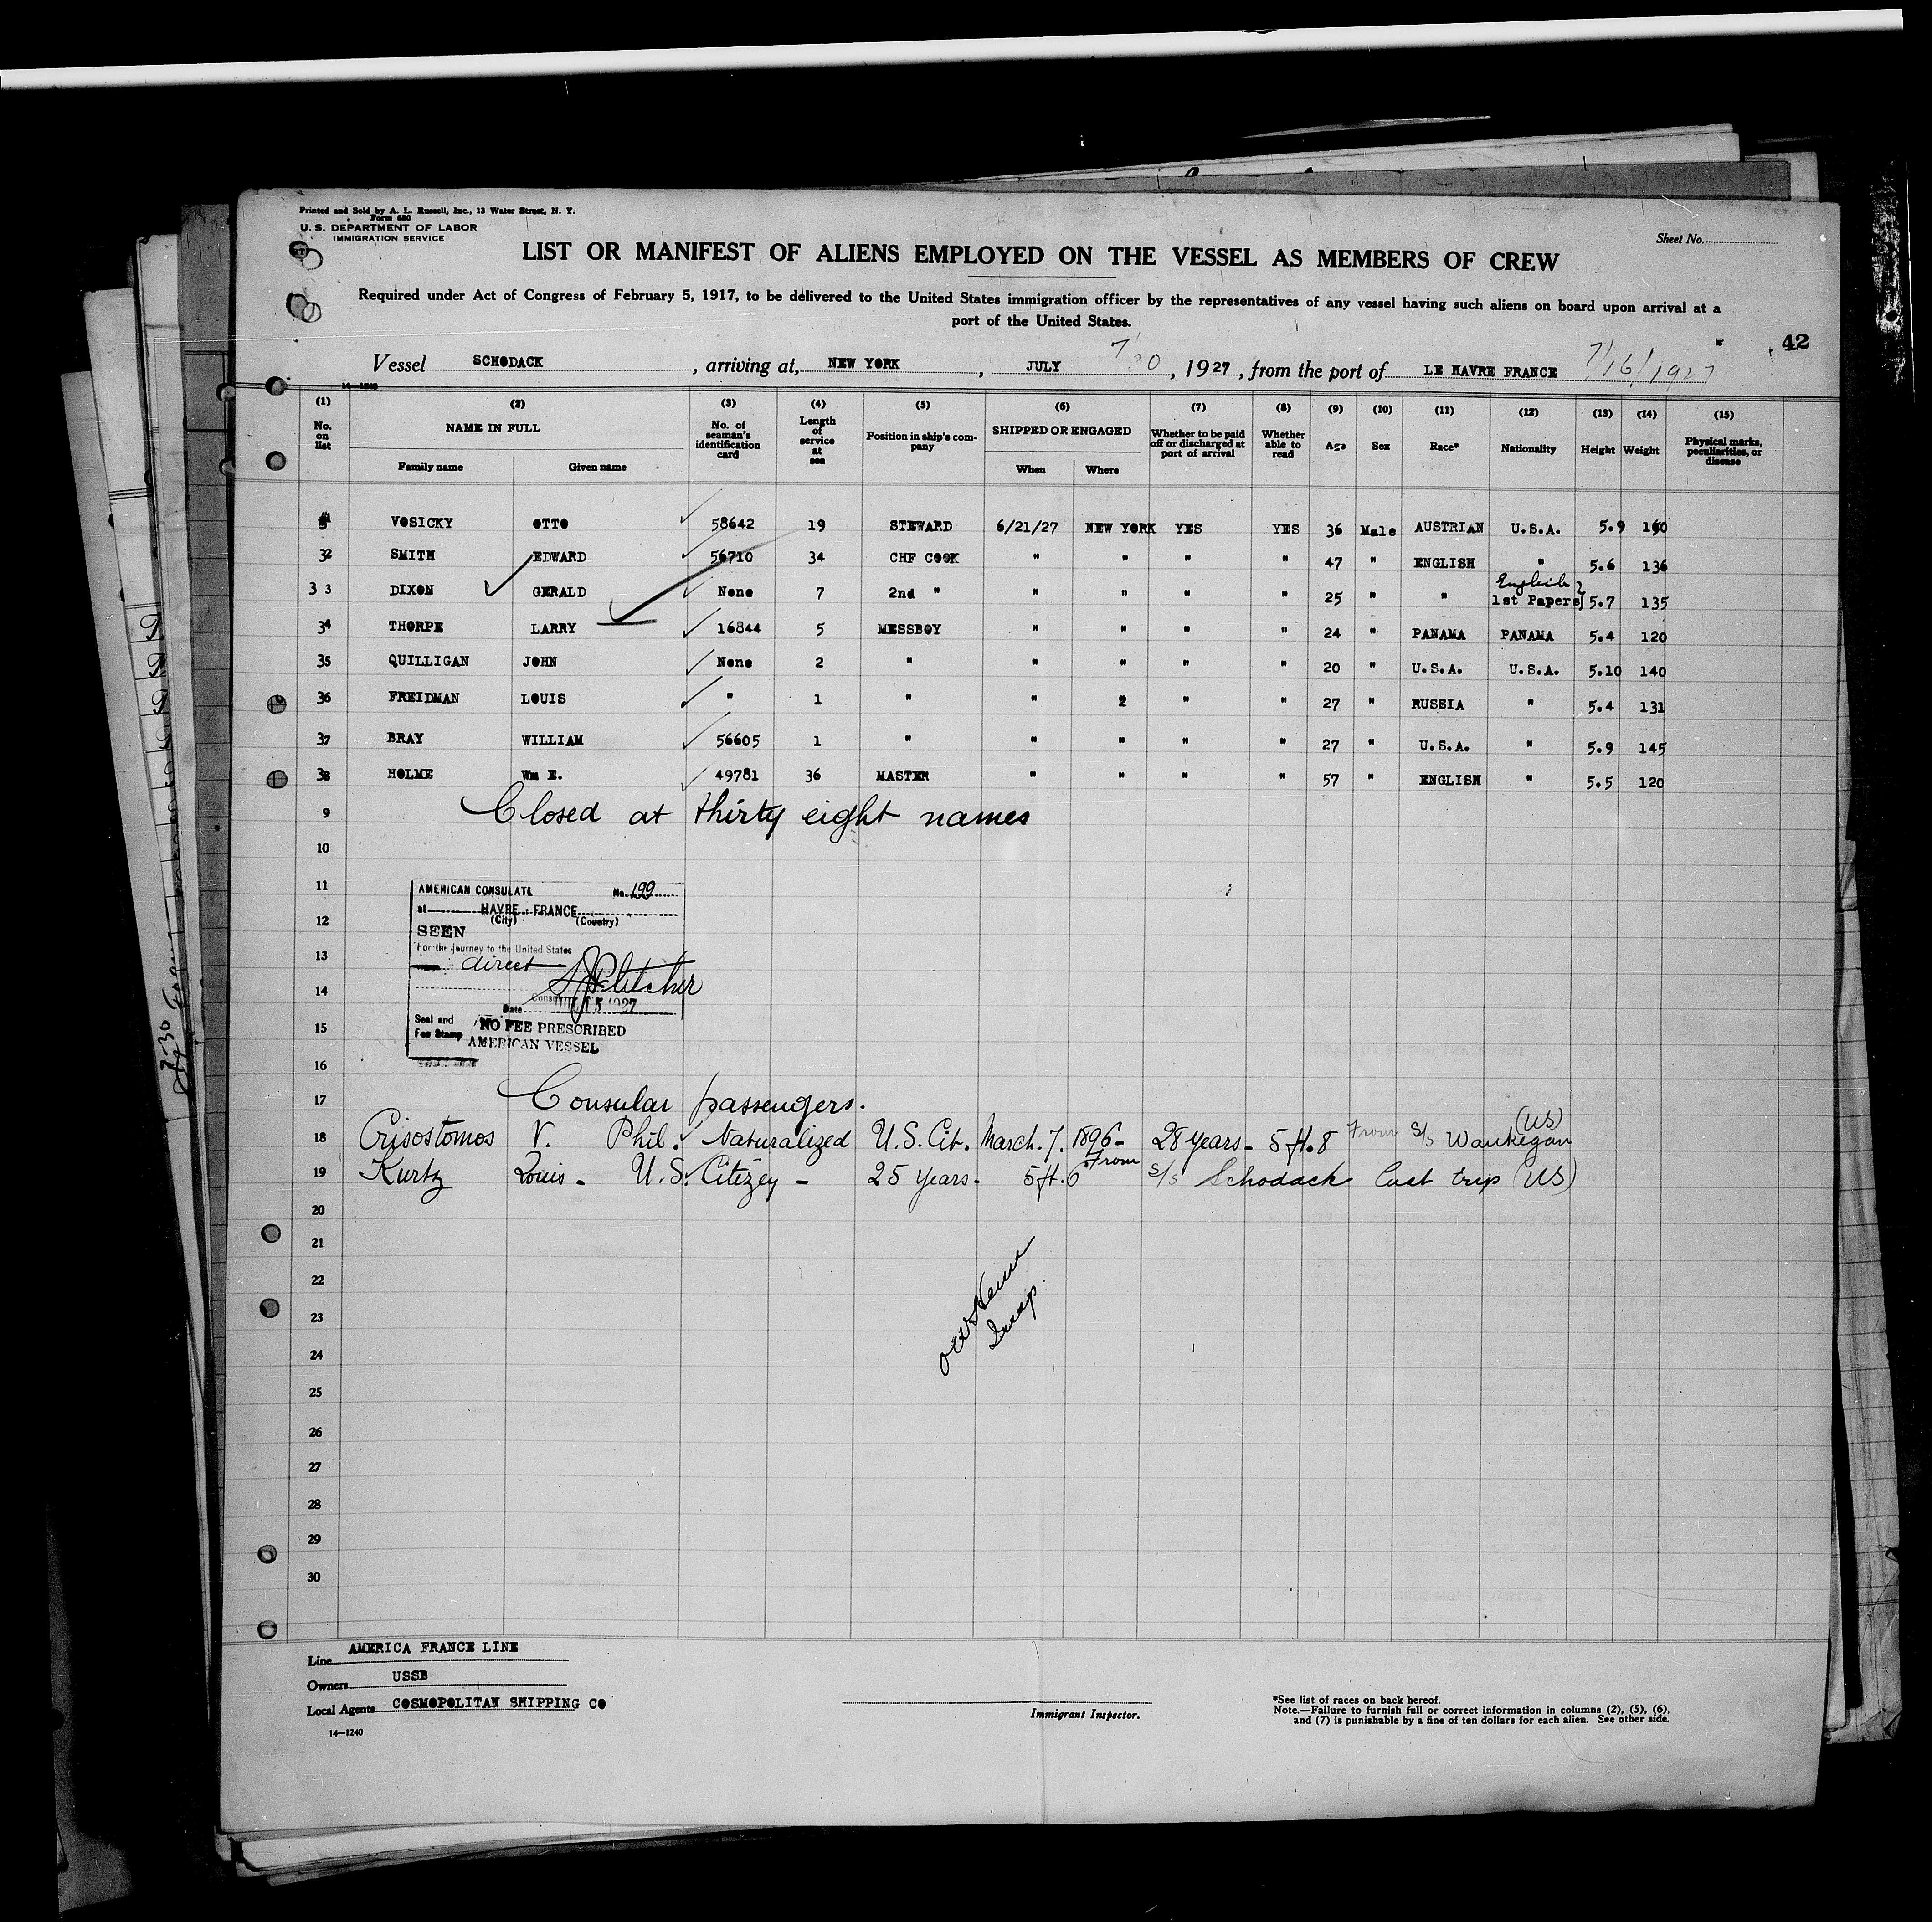 Printed and Sold by A. L. Russell, Inc., 13 Water Street, N. Y.
Form 680
U. S. DEPARTMENT OF LABOR
IMMIGRATION SERVICE
Sheet No.
LIST OR MANIFEST OF ALIENS EMPLOYED ON THE VESSEL AS MEMBERS OF CREW
Required under Act of Congress of February 5, 1917, to be delivered to the United States immigration officer by the representatives of any vessel having such aliens on board upon arrival at a
port of the United States.
42
Vessel SCHODACK, arriving at, NEW YORK, JULY 7/30, 1927, from the port of LE HAVRE FRANCE 7/16/1927
14-1240
(1) (2) (3) (4) (5) (6) (7) (8) (9) (10) (11) (12) (13) (14) (15)
No. on list NAME IN FULL Family name Given name No. of seaman's identification card Length of service at sea Position in ship's company SHIPPED OR ENGAGED When Where Whether to be paid off or discharged at port of arrival Whether able to read Age Sex Race* Nationality Height Weight Physical marks, peculiarities, or disease
VOSICKY OTTO 58642 19 STEWARD 6/21/27 NEW YORK YES YES 36 Male AUSTRIAN U.S.A. 5.9 160
32 SMITH EDWARD 56710 34 CHF COOK " " " " 47 " ENGLISH " 5.6 136
33 DIXON GERALD None 7 2nd " " " " " 25 " " English 1st Papers 5.7 135
34 THORPE LARRY 16844 5 MESSBOY " " " " 24 " PANAMA PANAMA 5.4 120
35 QUILLIGAN JOHN None 2 " " " " " 20 " U.S.A. U.S.A. 5.10 140
36 FREIDMAN LOUIS " 1 " " 2 " " 27 " RUSSIA " 5.4 131
37 BRAY WILLIAM 56605 1 " " " " " 27 " U.S.A. " 5.9 145
38 HOLME Wm E. 49781 36 MASTER " " " " 57 " ENGLISH " 5.5 120
9 Closed at thirty eight names
10
11
12
13
14
15
16
AMERICAN CONSULATE No. 199
at HAVRE, FRANCE
(City) (Country)
SEEN
For the journey to the United States
direct
Date JUL 15 1927
Seal and Fee Stamp NO FEE PRESCRIBED
AMERICAN VESSEL
17 Consular passengers.
18 Crisostomos V. Phil. Naturalized U.S. Cit. March. 7. 1896- 28 years- 5 ft. 8 From S/s Waukegan (US)
19 Kurtz Louis - U.S. Citizen - 25 years - 5 ft. 6 From S/s Schodack last trip (US)
20
21
22
23
24
25
26
27
28
29
30
Insp.
Line AMERICA FRANCE LINE
Owners USSB
Local Agents COSMOPOLITAN SHIPPING CO
14—1240
Immigrant Inspector.
*See list of races on back hereof.
Note.—Failure to furnish full or correct information in columns (2), (5), (6),
and (7) is punishable by a fine of ten dollars for each alien. See other side.